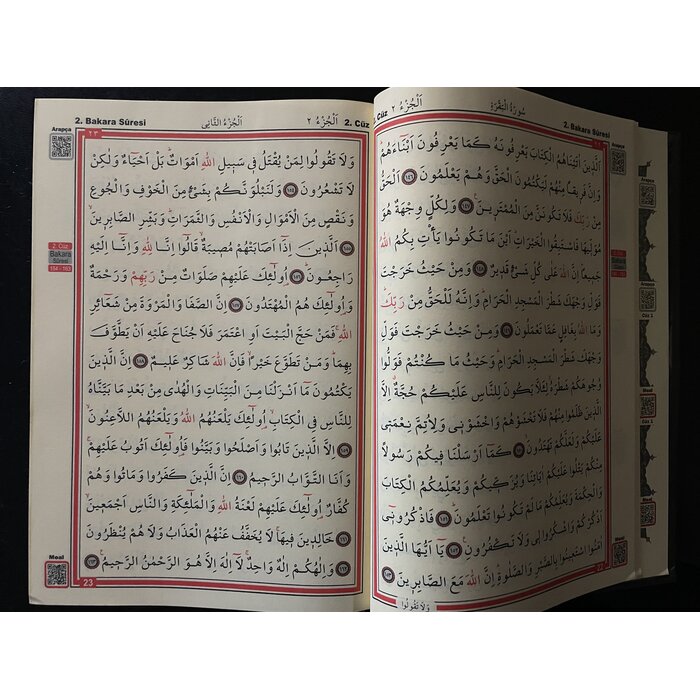 2. Cüz
اَلْجُزْءُ ٢
سُورَةُ الْبَقَرَةِ
2. Bakara Sûresi
اَلَّذ۪ينَ اٰتَيْنَاهُمُ الْكِتَابَ يَعْرِفُونَهُ كَمَا يَعْرِفُونَ اَبْنَٓاءَهُمْ
وَاِنَّ فَر۪يقًا مِنْهُمْ لَيَكْتُمُونَ الْحَقَّ وَهُمْ يَعْلَمُونَ ﴿١٤٦﴾ اَلْحَقُّ
مِنْ رَبِّكَ فَلَا تَكُونَنَّ مِنَ الْمُمْتَر۪ينَ ﴿١٤٧﴾ وَلِكُلٍّ وِجْهَةٌ هُوَ
مُوَلّ۪يهَا فَاسْتَبِقُوا الْخَيْرَاتِ اَيْنَ مَا تَكُونُوا يَأْتِ بِكُمُ اللّٰهُ
جَم۪يعًا اِنَّ اللّٰهَ عَلٰى كُلِّ شَيْءٍ قَد۪يرٌ ﴿١٤٨﴾ وَمِنْ حَيْثُ خَرَجْتَ
فَوَلِّ وَجْهَكَ شَطْرَ الْمَسْجِدِ الْحَرَامِ وَاِنَّهُ لَلْحَقُّ مِنْ رَبِّكَ
وَمَا اللّٰهُ بِغَافِلٍ عَمَّا تَعْمَلُونَ ﴿١٤٩﴾ وَمِنْ حَيْثُ خَرَجْتَ فَوَلِّ
وَجْهَكَ شَطْرَ الْمَسْجِدِ الْحَرَامِ وَحَيْثُ مَا كُنْتُمْ فَوَلُّوا
وُجُوهَكُمْ شَطْرَهُ لِئَلَّا يَكُونَ لِلنَّاسِ عَلَيْكُمْ حُجَّةٌ اِلَّا
الَّذ۪ينَ ظَلَمُوا مِنْهُمْ فَلَا تَخْشَوْهُمْ وَاخْشَوْن۪ي وَلِاُتِمَّ نِعْمَت۪ي
عَلَيْكُمْ وَلَعَلَّكُمْ تَهْتَدُونَ ﴿١٥٠﴾ كَمَٓا اَرْسَلْنَا ف۪يكُمْ رَسُولًا
مِنْكُمْ يَتْلُوا عَلَيْكُمْ اٰيَاتِنَا وَيُزَكّ۪يكُمْ وَيُعَلِّمُكُمُ الْكِتَابَ
وَالْحِكْمَةَ وَيُعَلِّمُكُمْ مَا لَمْ تَكُونُوا تَعْلَمُونَ ﴿١٥١﴾ فَاذْكُرُون۪ٓي
اَذْكُرْكُمْ وَاشْكُرُوا ل۪ي وَلَا تَكْفُرُونِ ﴿١٥٢﴾ يَٓا اَيُّهَا الَّذ۪ينَ
اٰمَنُوا اسْتَع۪ينُوا بِالصَّبْرِ وَالصَّلٰوةِ اِنَّ اللّٰهَ مَعَ الصَّابِر۪ينَ ﴿١٥٣﴾
وَلَا تَقُولُوا
2. Bakara Sûresi
اَلْجُزْءُ الثَّانِى
اَلْجُزْءُ ٢
2. Cüz
Arapça
٢٣
وَلَا تَقُولُوا لِمَنْ يُقْتَلُ ف۪ي سَب۪يلِ اللّٰهِ اَمْوَاتٌ بَلْ اَحْيَٓاءٌ وَلٰكِنْ
لَا تَشْعُرُونَ ﴿١٥٤﴾ وَلَنَبْلُوَنَّكُمْ بِشَيْءٍ مِنَ الْخَوْفِ وَالْجُوعِ
وَنَقْصٍ مِنَ الْاَمْوَالِ وَالْاَنْفُسِ وَالثَّمَرَاتِ وَبَشِّرِ الصَّابِر۪ينَ ﴿١٥٥﴾
اَلَّذ۪ينَ اِذَٓا اَصَابَتْهُمْ مُص۪يبَةٌ قَالُٓوا اِنَّا لِلّٰهِ وَاِنَّٓا اِلَيْهِ
رَاجِعُونَ ﴿١٥٦﴾ اُو۬لٰٓئِكَ عَلَيْهِمْ صَلَوَاتٌ مِنْ رَبِّهِمْ وَرَحْمَةٌ
وَاُو۬لٰٓئِكَ هُمُ الْمُهْتَدُونَ ﴿١٥٧﴾ اِنَّ الصَّفَا وَالْمَرْوَةَ مِنْ شَعَٓائِرِ
اللّٰهِ فَمَنْ حَجَّ الْبَيْتَ اَوِ اعْتَمَرَ فَلَا جُنَاحَ عَلَيْهِ اَنْ يَطَّوَّفَ
بِهِمَا وَمَنْ تَطَوَّعَ خَيْرًا فَاِنَّ اللّٰهَ شَاكِرٌ عَل۪يمٌ ﴿١٥٨﴾ اِنَّ الَّذ۪ينَ
يَكْتُمُونَ مَٓا اَنْزَلْنَا مِنَ الْبَيِّنَاتِ وَالْهُدٰى مِنْ بَعْدِ مَا بَيَّنَّاهُ
لِلنَّاسِ فِي الْكِتَابِ اُو۬لٰٓئِكَ يَلْعَنُهُمُ اللّٰهُ وَيَلْعَنُهُمُ اللَّاعِنُونَ ﴿١٥٩﴾
اِلَّا الَّذ۪ينَ تَابُوا وَاَصْلَحُوا وَبَيَّنُوا فَاُو۬لٰٓئِكَ اَتُوبُ عَلَيْهِمْ
وَاَنَا التَّوَّابُ الرَّح۪يمُ ﴿١٦٠﴾ اِنَّ الَّذ۪ينَ كَفَرُوا وَمَاتُوا وَهُمْ
كُفَّارٌ اُو۬لٰٓئِكَ عَلَيْهِمْ لَعْنَةُ اللّٰهِ وَالْمَلٰٓئِكَةِ وَالنَّاسِ اَجْمَع۪ينَ ﴿١٦١﴾
خَالِد۪ينَ ف۪يهَا لَا يُخَفَّفُ عَنْهُمُ الْعَذَابُ وَلَا هُمْ يُنْظَرُونَ ﴿١٦٢﴾
وَاِلٰهُكُمْ اِلٰهٌ وَاحِدٌ لَٓا اِلٰهَ اِلَّا هُوَ الرَّحْمٰنُ الرَّح۪يمُ ﴿١٦٣﴾
2. Cüz
Bakara
Sûresi
154 - 163
Meal
23
Arapça
Cüz 2
Meal
Cüz 1
Meal